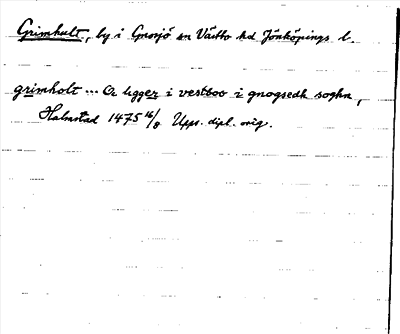 Grimhult, by i Gnosjö sn Västbo hd Jönköpings l.
grimholt ... ligger i vestboo i gnogsedh soghn,
Halmstad 1475 16/8 Upps. dipl. orig.